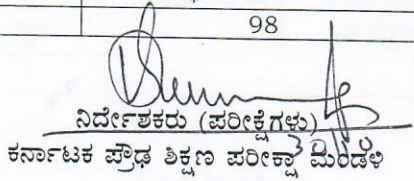 98
ನಿರ್ದೇಶಕರು (ಪರೀಕ್ಷೆಗಳು)
ಕರ್ನಾಟಕ ಪ್ರೌಢ ಶಿಕ್ಷಣ ಪರೀಕ್ಷಾ ಮಂಡಳಿ